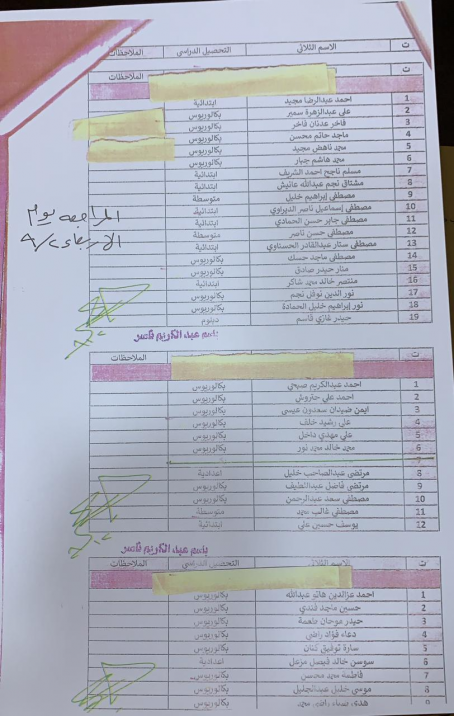 ت الاسم الثلاثي التحصيل الدراسي الملاحظات
ت الملاحظات
1 احمد عبدالرضا مجيد ابتدائية
2 علي عبدالزهرة سمير بكالوريوس
3 فاخر عدنان فاخر بكالوريوس
4 ماجد حاتم محسن بكالوريوس
5 محمد ناهض مجيد بكالوريوس
6 محمد هاشم جبار بكالوريوس
7 مسلم ناجح احمد الشريف ابتدائية
8 مشتاق نجم عبدالله عانيش ابتدائية
9 مصطفى إبراهيم خليل متوسطة
10 مصطفى إسماعيل ناصر الديراوي ابتدائية
11 مصطفى جابر حسن الحمادي ابتدائية
12 مصطفى حسن ناصر متوسطة
13 مصطفى ستار عبدالقادر الحسناوي ابتدائية
14 مصطفى ماجد حسك بكالوريوس
15 منار حيدر صادق بكالوريوس
16 منتصر خالد محمد شاكر ابتدائية
17 نور الدين نوفل نجم بكالوريوس
18 نور إبراهيم خليل الحمادة بكالوريوس
19 حيدر غازي قاسم دبلوم
المراجعه يوم
الاربعاء ٩/٢
باسم عبد الكريم ناصر
ت الملاحظات
1 احمد عبدالكريم صبحي بكالوريوس
2 احمد علي حتروش بكالوريوس
3 ايمن ضيدان سعدون عيسى بكالوريوس
4 علي رشيد خلف بكالوريوس
5 علي مهدي داخل بكالوريوس
6 محمد خالد محمد نور بكالوريوس
7
8 مرتضى عبدالصاحب خليل اعدادية
9 مرتضى فاضل عبداللطيف بكالوريوس
10 مصطفى سعد عبدالرحمن بكالوريوس
11 مصطفى غالب محمد متوسطة
12 يوسف حسين علي ابتدائية
باسم عبد الكريم ناصر
ت الاسم الثلاثي التحصيل الدراسي الملاحظات
1 احمد عزالدين هاتو عبدالله بكالوريوس
2 حسين ماجد فندي بكالوريوس
3 حيدر موحان طعمة بكالوريوس
4 دعاء فؤاد راضي بكالوريوس
5 سارة توفيق بكالوريوس
6 سوسن خالد فيصل مزعل اعدادية
7 فاطمة محمد محسن بكالوريوس
8 موسى خليل عبدالجليل بكالوريوس
9 هدى ضياء راضي محمد بكالوريوس